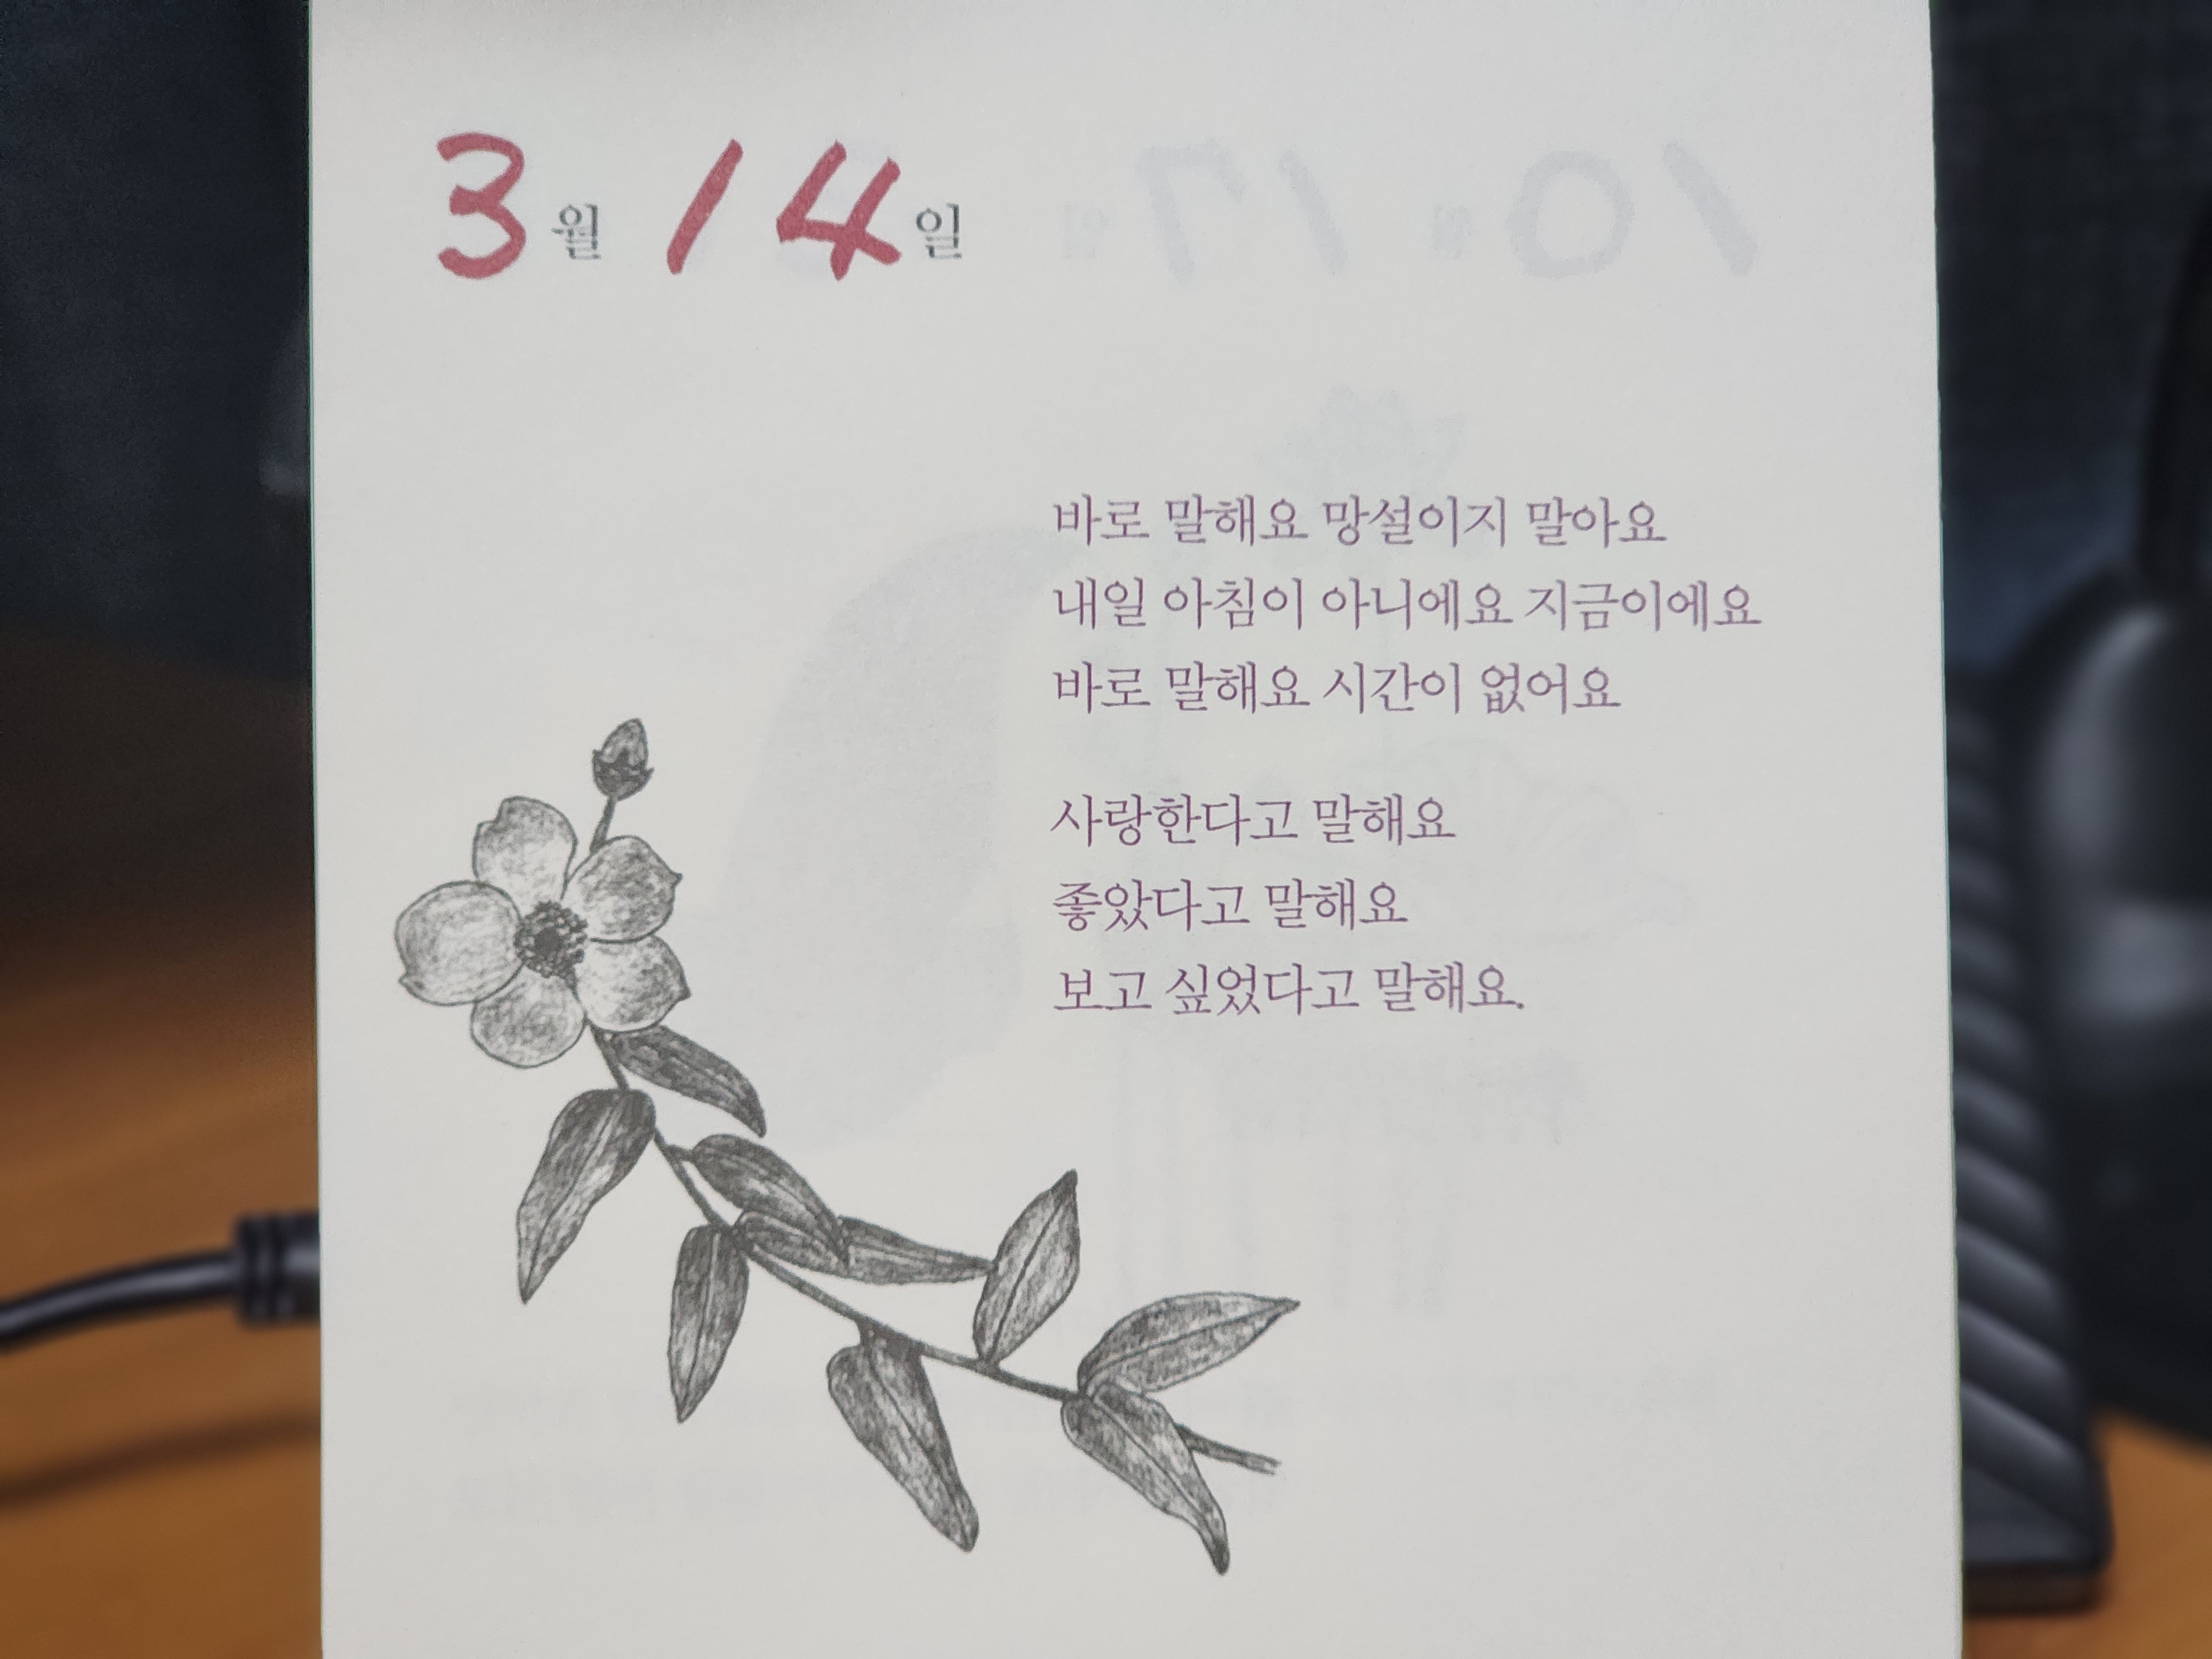 3월 14일
바로 말해요 망설이지 말아요
내일 아침이 아니에요 지금이에요
바로 말해요 시간이 없어요
사랑한다고 말해요
좋았다고 말해요
보고 싶었다고 말해요.